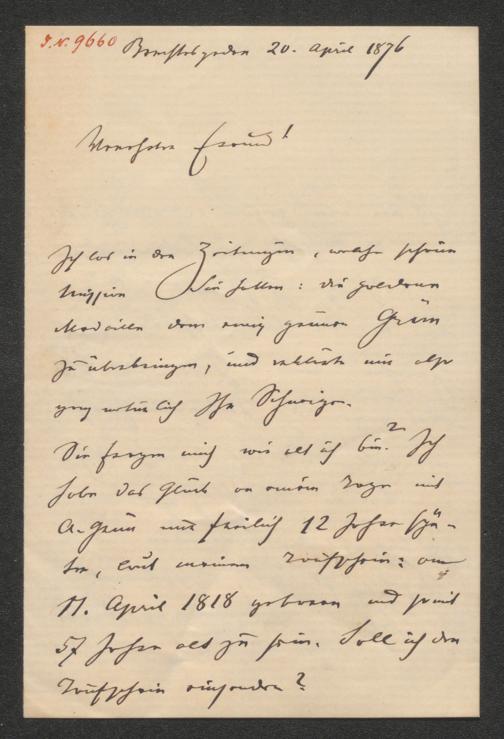 I. N. 9660
Berchtesgaden 20. April 1876
Verehrter Freund!
Ich las in den Zeitungen, welche schöne
Mission Sie hatten: die goldene
Medaille dem ewig grünen Grün
zu überbringen, und erklärte mir also
ganz natürlich Ihr Schweigen.
Sie fragen mich wie alt ich bin? Ich
habe das Glück an einem Tage mit
A. Grün nur freilich 12 Jahre spä-
ter, laut meinem Taufschein: am
11. April 1818 geboren und somit
57 Jahre alt zu sein. Soll ich den
Taufschein einsenden?